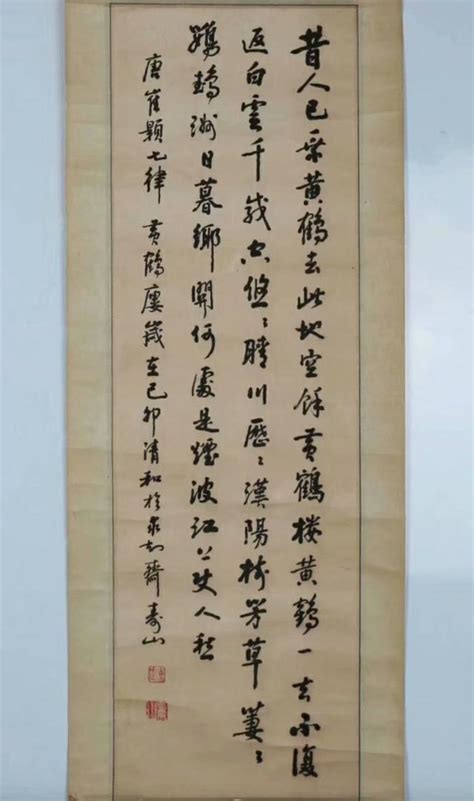 昔人已乘黄鶴去此地空餘黄鶴楼黄鶴一去不復
返白雲千載空悠〻晴川歷〻漢陽樹芳草萋〻
鸚鵡洲日暮鄉關何處是煙波江上使人愁
唐崔顥七律 黄鶴廔歲在己卯清和於求知齋壽山